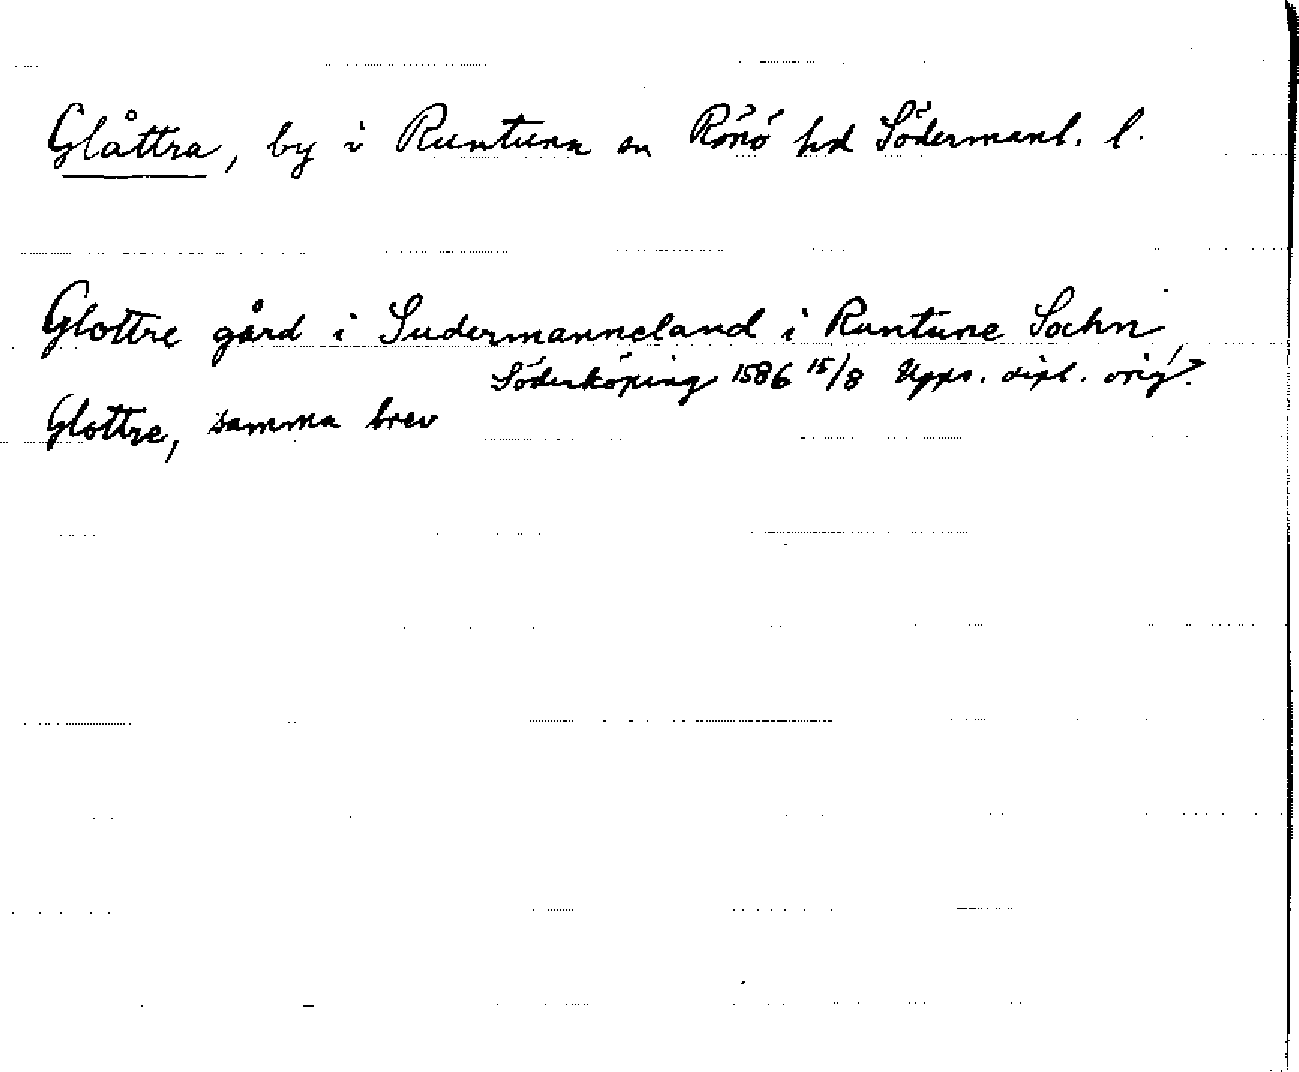 Glåttra, by i Runtuna sn Rönö hd Södermanl. l.
Glottre gård i Sudermanneland i Runtune Sochn,
Söderköping 1586 15/8 Upps. dipl. orig?
Glottre, samma brev